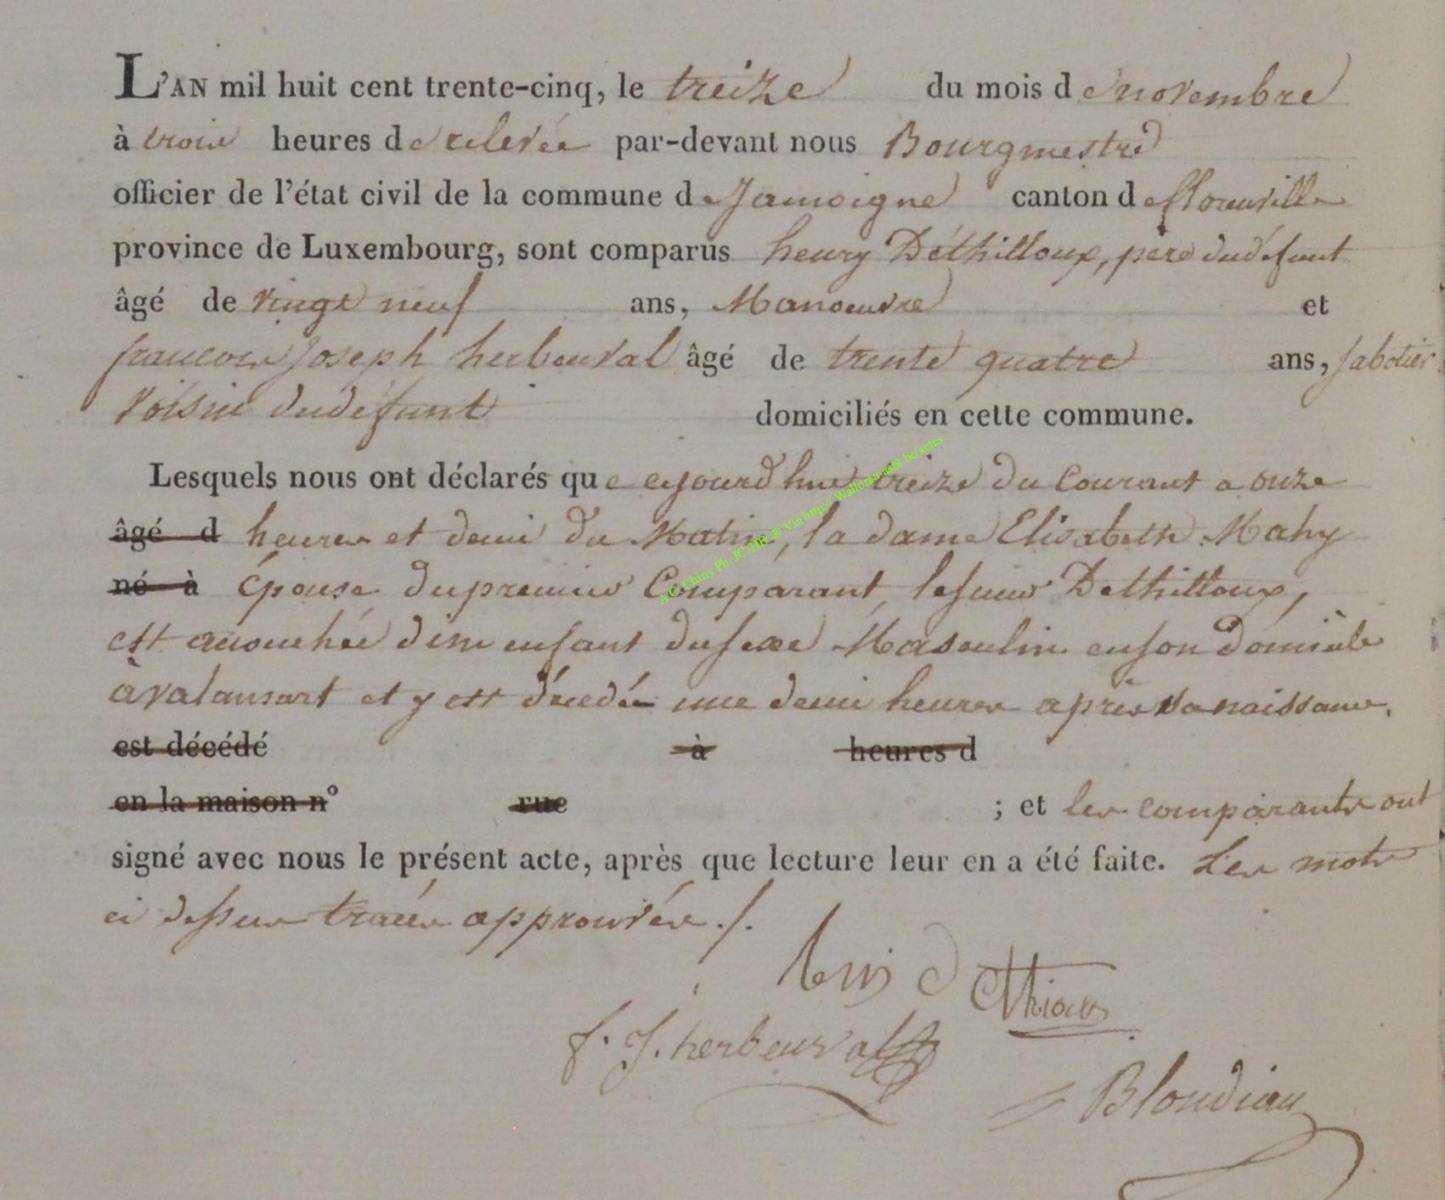 L'AN mil huit cent trente-cinq, le treize du mois de novembre
à trois heures de relevée par-devant nous Bourgmestre
officier de l'état civil de la commune de Jamoigne canton de florenville
province de Luxembourg, sont comparus henry Déthilloux, père du défunt
âgé de vingt neuf ans, Manoeuvre et
francois joseph herbeuval âgé de trente quatre ans, sabotier
voisin du défunt domiciliés en cette commune.
Lesquels nous ont déclarés que cejourd'hui treize du Courant a onze
âgé d heures et demi du Matin, la dame Elisabeth Mahy
né à épouse du premier Comparant, le sieur Dethilloux,
est accouchée d'un enfant du sexe Masculin en son domicile
à valansart et y est décédé une demi heures après sa naissance.
est décédé à heures d
en la maison n° rue ; et les comparants ont
signé avec nous le présent acte, après que lecture leur en a été faite. Les mots
ci dessus tracés approuvés ./.
f. J. herbeuval
Blondiau